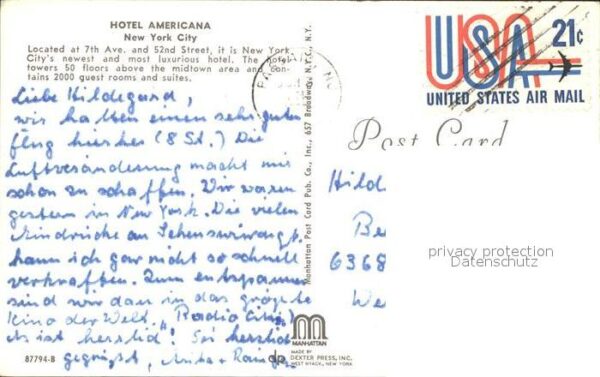 HOTEL AMERICANA
New York City
Located at 7th Ave. and 52nd Street, it is New York
City's newest and most luxurious hotel. The hotel
towers 50 floors above the midtown area and con-
tains 2000 guest rooms and suites.
Liebe Hildegard,
wir hatten einen sehr guten
flug hierher (8 St.) Die
Luftveränderung macht mir
schon zu schaffen. Wir waren
gestern in New York. Die vielen
Eindrücke an Sehenswürdigk.
kann ich gar nicht so schnell
verkraften. Zum entspannen
sind wir dann in das größte
Kino der Welt, "Radio City"
es ist herrlich! Sei herzlich
gegrüßt, Anita +
87794-B
Manhattan Post Card Pub. Co., Inc., 657 Broadway, N.Y.C., N.Y.
MANHATTAN
MADE BY
DEXTER PRESS, INC.
WEST NYACK, NEW YORK
USA 21¢
UNITED STATES AIR MAIL
Post Card
Hild
Be
6368
We
privacy protection
Datenschutz